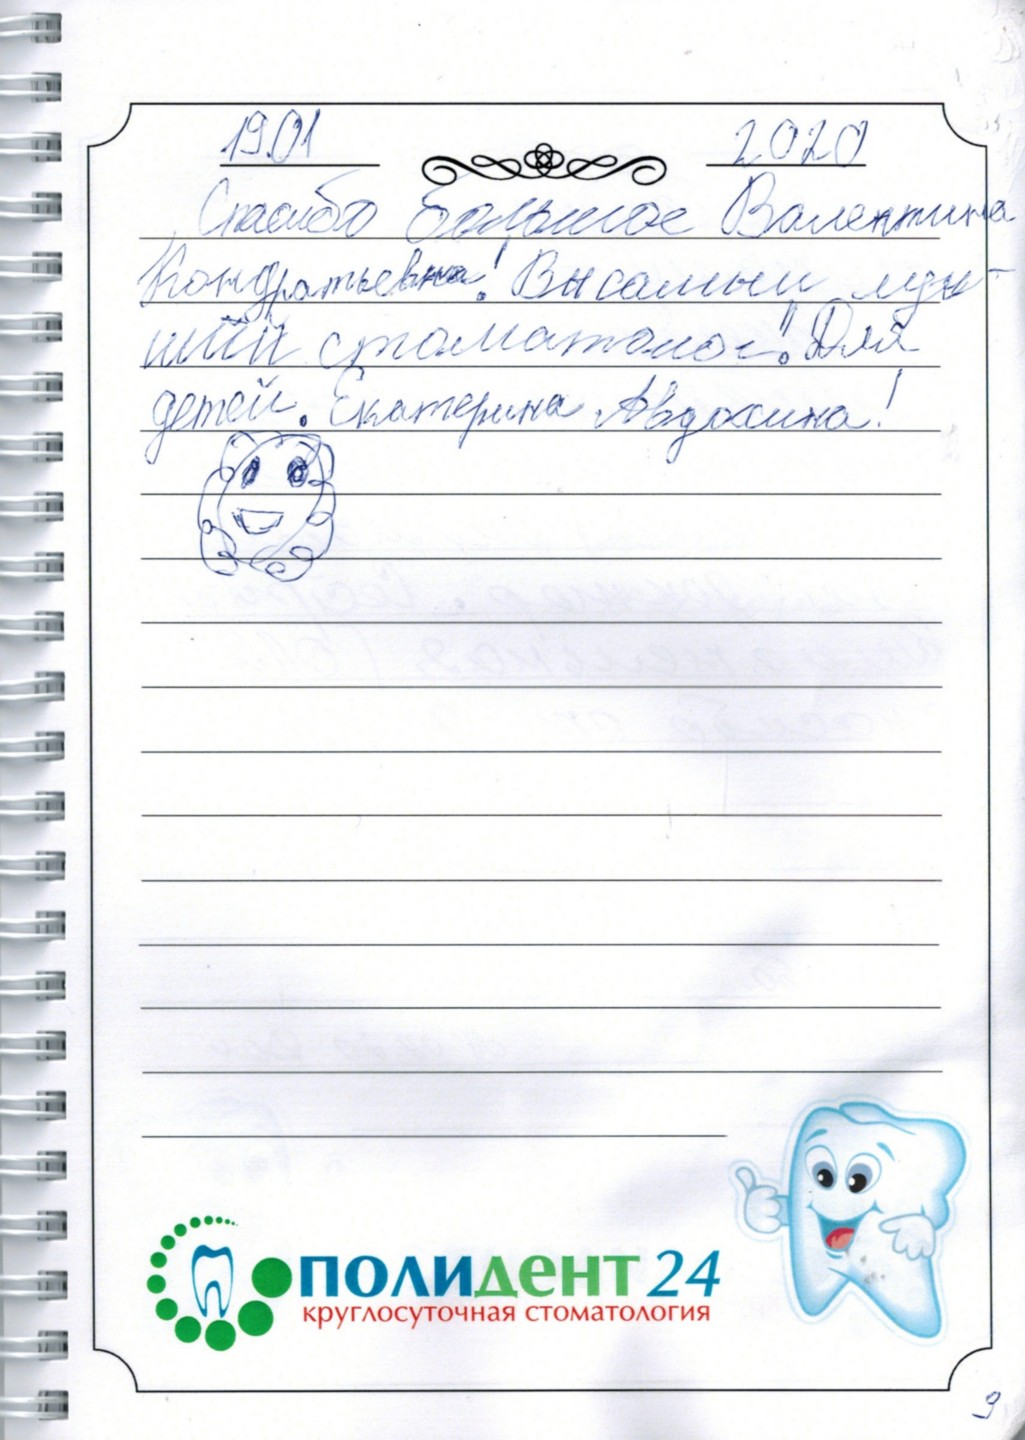 19.01 2020
Спасибо большое Валентина
Кондратьевна! Вы самый луч-
ший стоматолог! Для
детей. Екатерина Авдохина!
полидент 24
круглосуточная стоматология
9